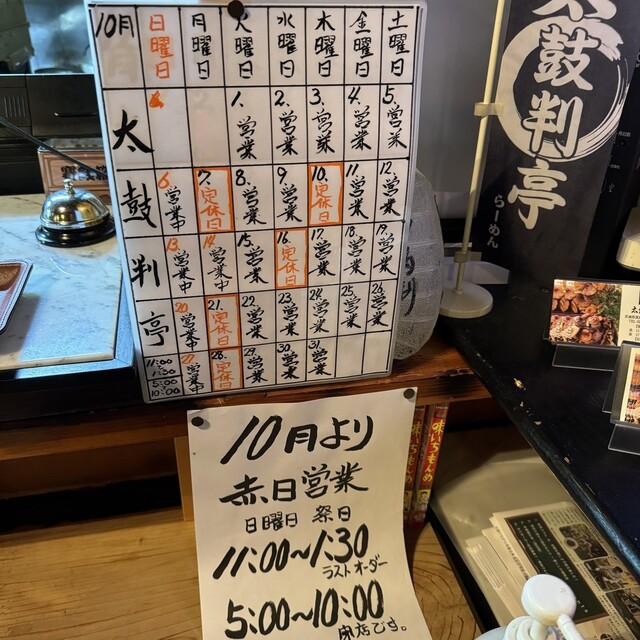 10月 日曜日 月曜日 火曜日 水曜日 木曜日 金曜日 土曜日
太 1. 営業 2. 営業 3. 営業 4. 営業 5. 営業
鼓 6 営業中 7. 定休日 8. 営業 9. 営業 10. 定休日 11. 営業 12. 営業
判 13 営業中 14. 営業中 15. 営業 16. 定休日 17. 営業 18. 営業 19. 営業
亭 20 営業中 21. 定休日 22. 営業 23. 営業 24. 営業 25. 営業 26. 営業
27 営業中 28. 定休 29. 営業 30. 営業 31. 営業
5:00
10:00
太鼓判亭
らーめん
10月より
赤日営業
日曜日 祭日
11:00〜1:30
ラストオーダー
5:00〜10:00
閉店です。